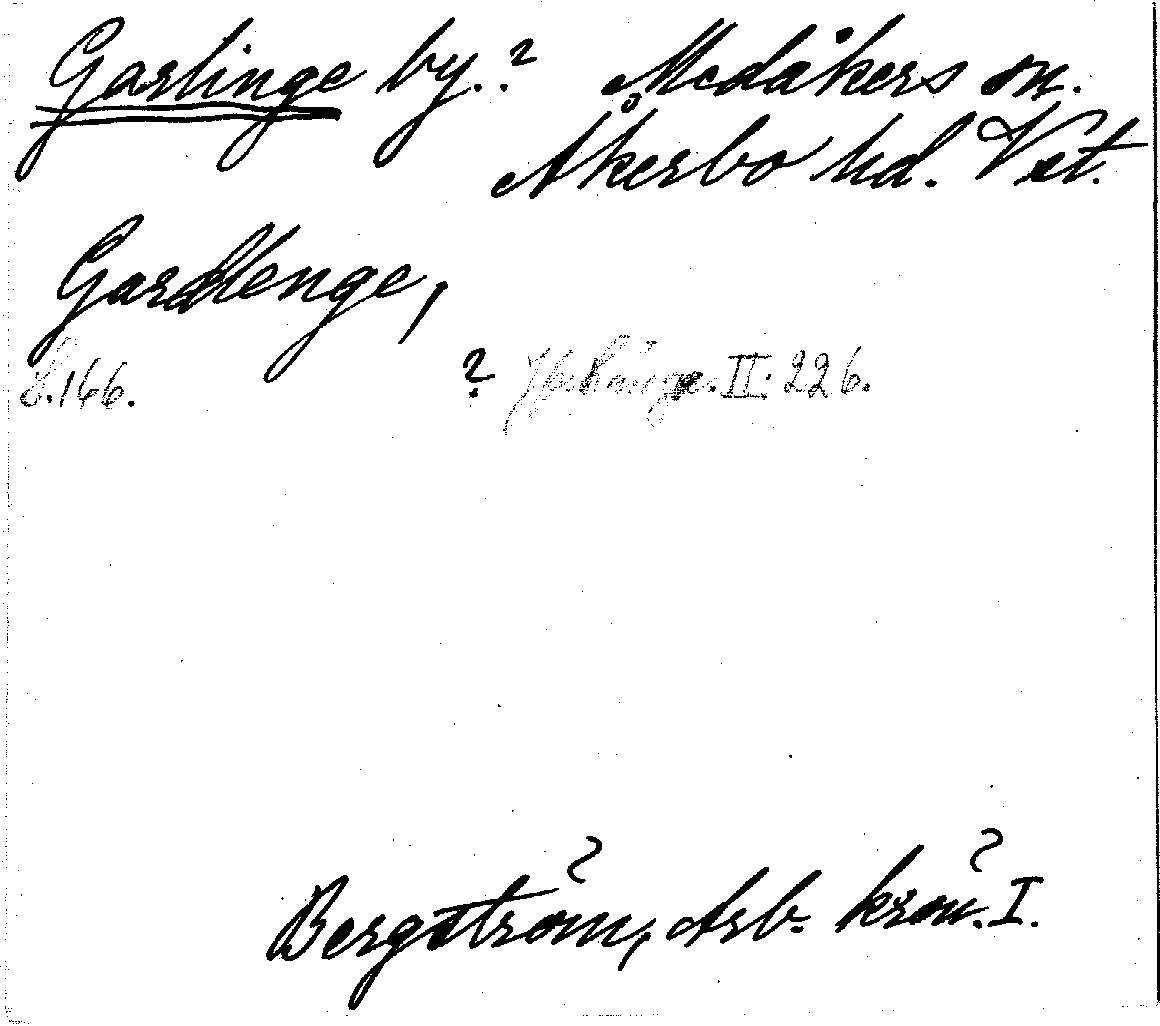 Garlinge by.? Medåkers sn.
Åkerbo hd. Vst.
Gardlenge,
s.166. ? II: 226.
Bergström, Arb. krön. I.